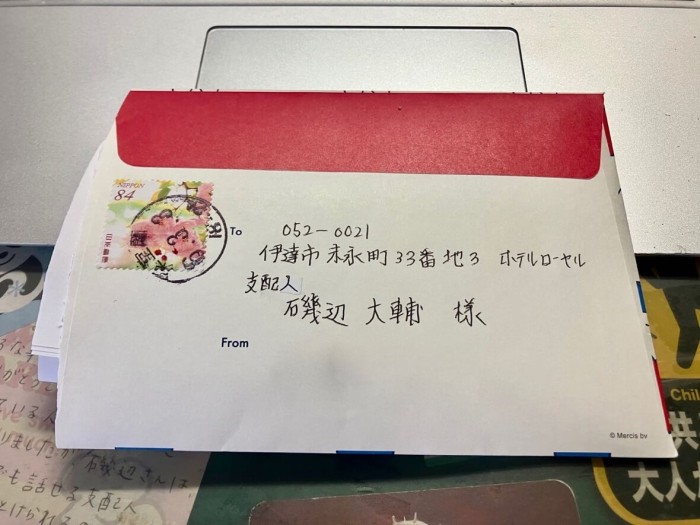 NIPPON
84
日本郵便
To
052-0021
伊達市末永町33番地3 ホテルローヤル
支配人
石幾辺 大輔 様
From
© Mercis bv
Chil
供
大人
石幾辺さんは
でも話せる支配人